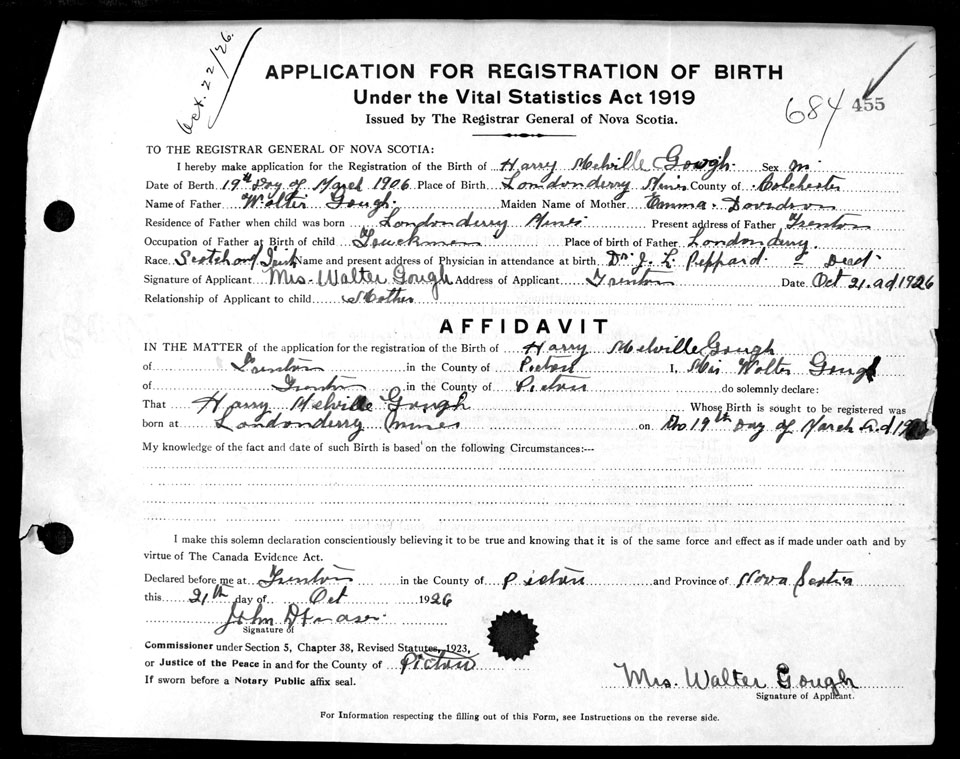 Oct. 22/26.
APPLICATION FOR REGISTRATION OF BIRTH
Under the Vital Statistics Act 1919
684 455
Issued by The Registrar General of Nova Scotia.
TO THE REGISTRAR GENERAL OF NOVA SCOTIA:
I hereby make application for the Registration of the Birth of Harry Melville Gough. Sex M.
Date of Birth 19th Day of March 1906 Place of Birth Londonderry Mines County of Colchester
Name of Father Walter Gough. Maiden Name of Mother Emma Davidson
Residence of Father when child was born Londonderry Mines Present address of Father Trenton
Occupation of Father at Birth of child Truckman Place of birth of Father Londonderry.
Race Scotch and Irish Name and present address of Physician in attendance at birth Dr J. L. Peppard - Dead.
Signature of Applicant Mrs. Walter Gough Address of Applicant Trenton Date Oct 21. ad 1926
Relationship of Applicant to child Mother
AFFIDAVIT
IN THE MATTER of the application for the registration of the Birth of Harry Melville Gough
of Trenton in the County of Pictou I, Mrs Walter Gough
of Trenton in the County of Pictou do solemnly declare:
That Harry Melville Gough Whose Birth is sought to be registered was
born at Londonderry Mines on 19th Day of March A.d
My knowledge of the fact and date of such Birth is based on the following Circumstances:—
I make this solemn declaration conscientiously believing it to be true and knowing that it is of the same force and effect as if made under oath and by
virtue of The Canada Evidence Act.
Declared before me at Trenton in the County of Pictou and Province of Nova Scotia
this 21th day of Oct 1926
John D Fraser.
Signature of
Commissioner under Section 5, Chapter 38, Revised Statutes, 1923,
or Justice of the Peace in and for the County of Pictou
If sworn before a Notary Public affix seal.
Mrs. Walter Gough
Signature of Applicant.
For Information respecting the filling out of this Form, see Instructions on the reverse side.